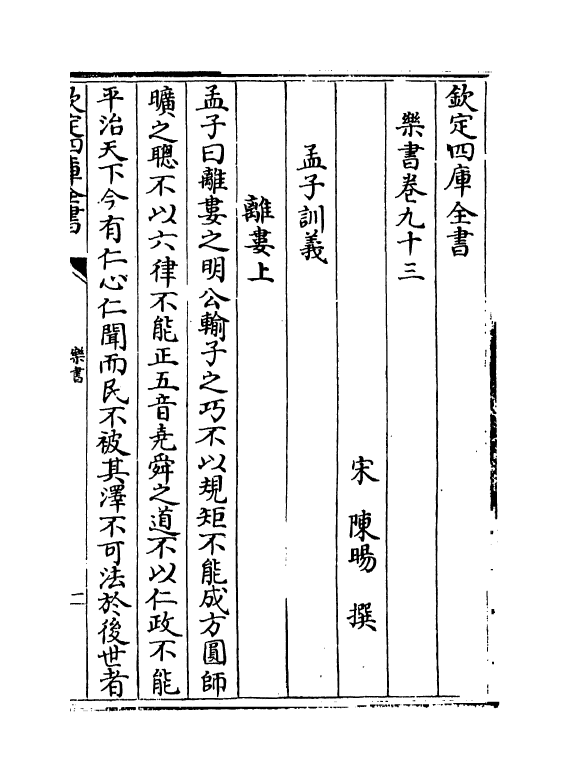 欽定四庫全書
樂書卷九十三
宋 陳暘 撰
孟子訓義
離婁上
孟子曰離婁之明公輸子之巧不以規矩不能成方圓師
曠之聰不以六律不能正五音堯舜之道不以仁政不能
平治天下今有仁心仁聞而民不被其澤不可法於後世者
欽定四庫全書
樂書
二